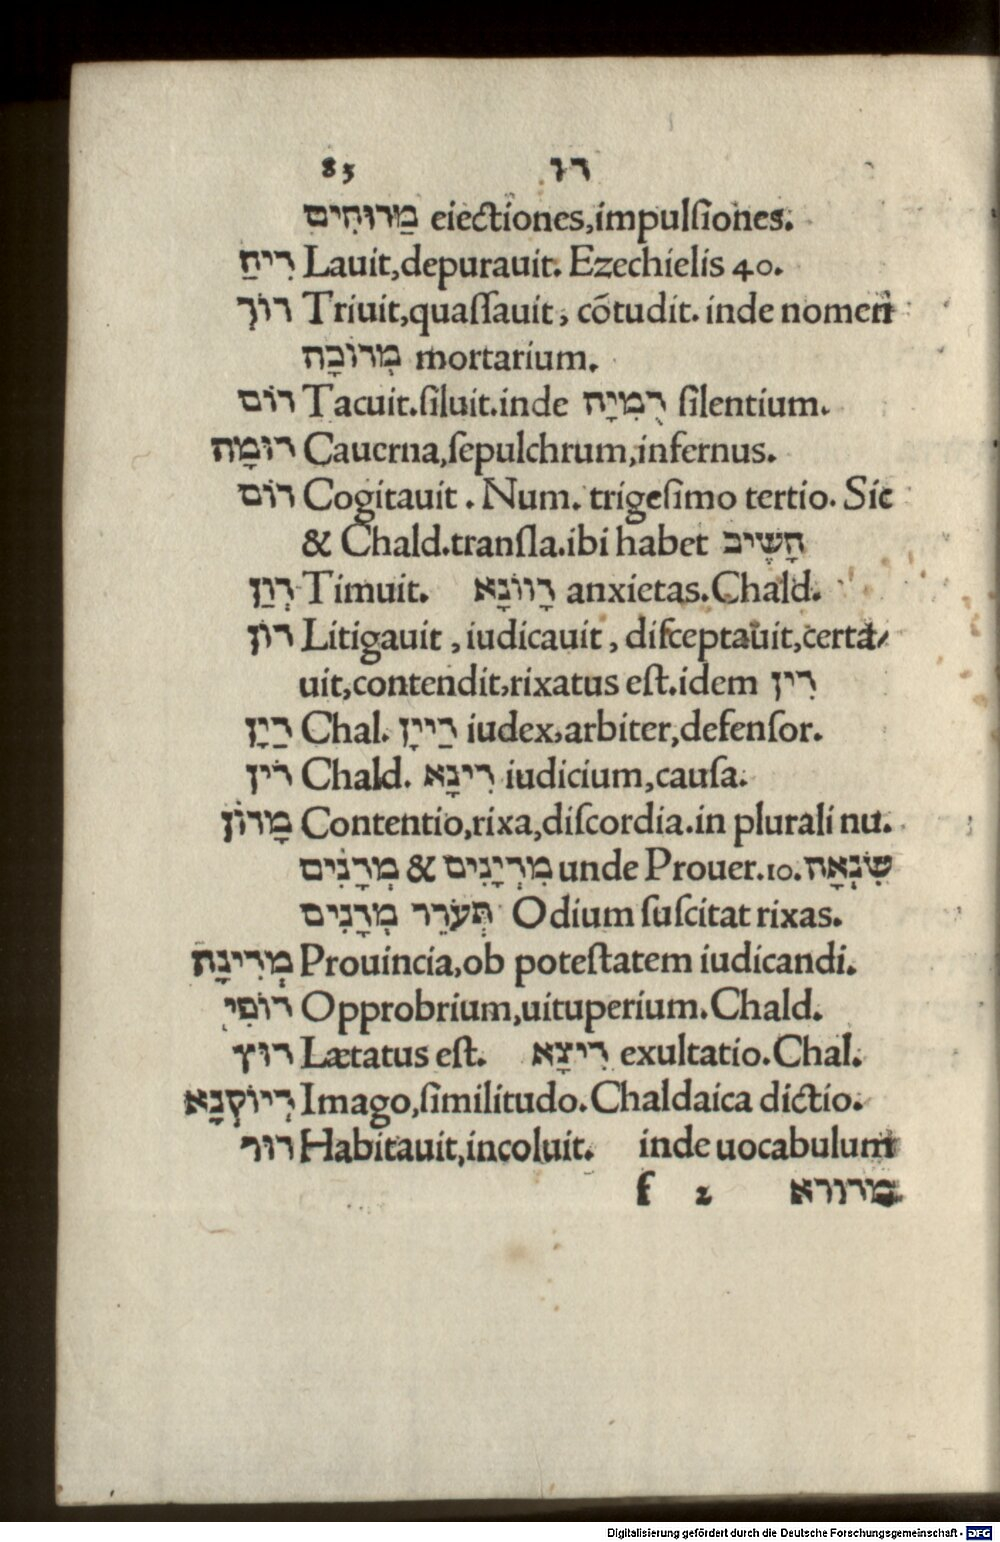 83 דו
מַדּוּחִים eiectiones,impulſiones.
דִּיחַ Lauit,depurauit. Ezechielis 40.
דּוֹךְ Triuit,quaſſauit, cõtudit. inde nomen
מְדוֹכָה mortarium.
דּוֹם Tacuit.ſiluit.inde דֻמִיָּה ſilentium.
דּוּמָה Cauerna,ſepulchrum,infernus.
דּוֹם Cogitauit. Num. trigeſimo tertio. Sic
& Chald.tranſla.ibi habet חָשֵׁיב
דְּוַן Timuit. דָּווֹנָא anxietas.Chald.
דּוֹן Litigauit, iudicauit, diſceptauit,certa/
uit,contendit,rixatus eſt.idem דִּין
דַּיָּן Chal. דַּיָּין iudex,arbiter,defenſor.
דִּין Chald. דִּינָא iudicium,cauſa.
מָדוֹן Contentio,rixa,diſcordia.in plurali nu.
מְדָנִים & מִדְיָנִים unde Prouer.10.שִׂנְאָה
תְּעֹרֵר מְדָנִים Odium ſuſcitat rixas.
מְדִינָה Prouincia,ob poteſtatem iudicandi.
דּוֹפִי Opprobrium,uituperium.Chald.
דּוּץ Lætatus eſt. דִּיצָא exultatio.Chal.
דְּיוֹקְנָא Imago,ſimilitudo.Chaldaica dictio.
דּוּר Habitauit,incoluit. inde uocabulum
f 2 מדורא
Digitalisierung gefördert durch die Deutsche Forschungsgemeinschaft - DFG